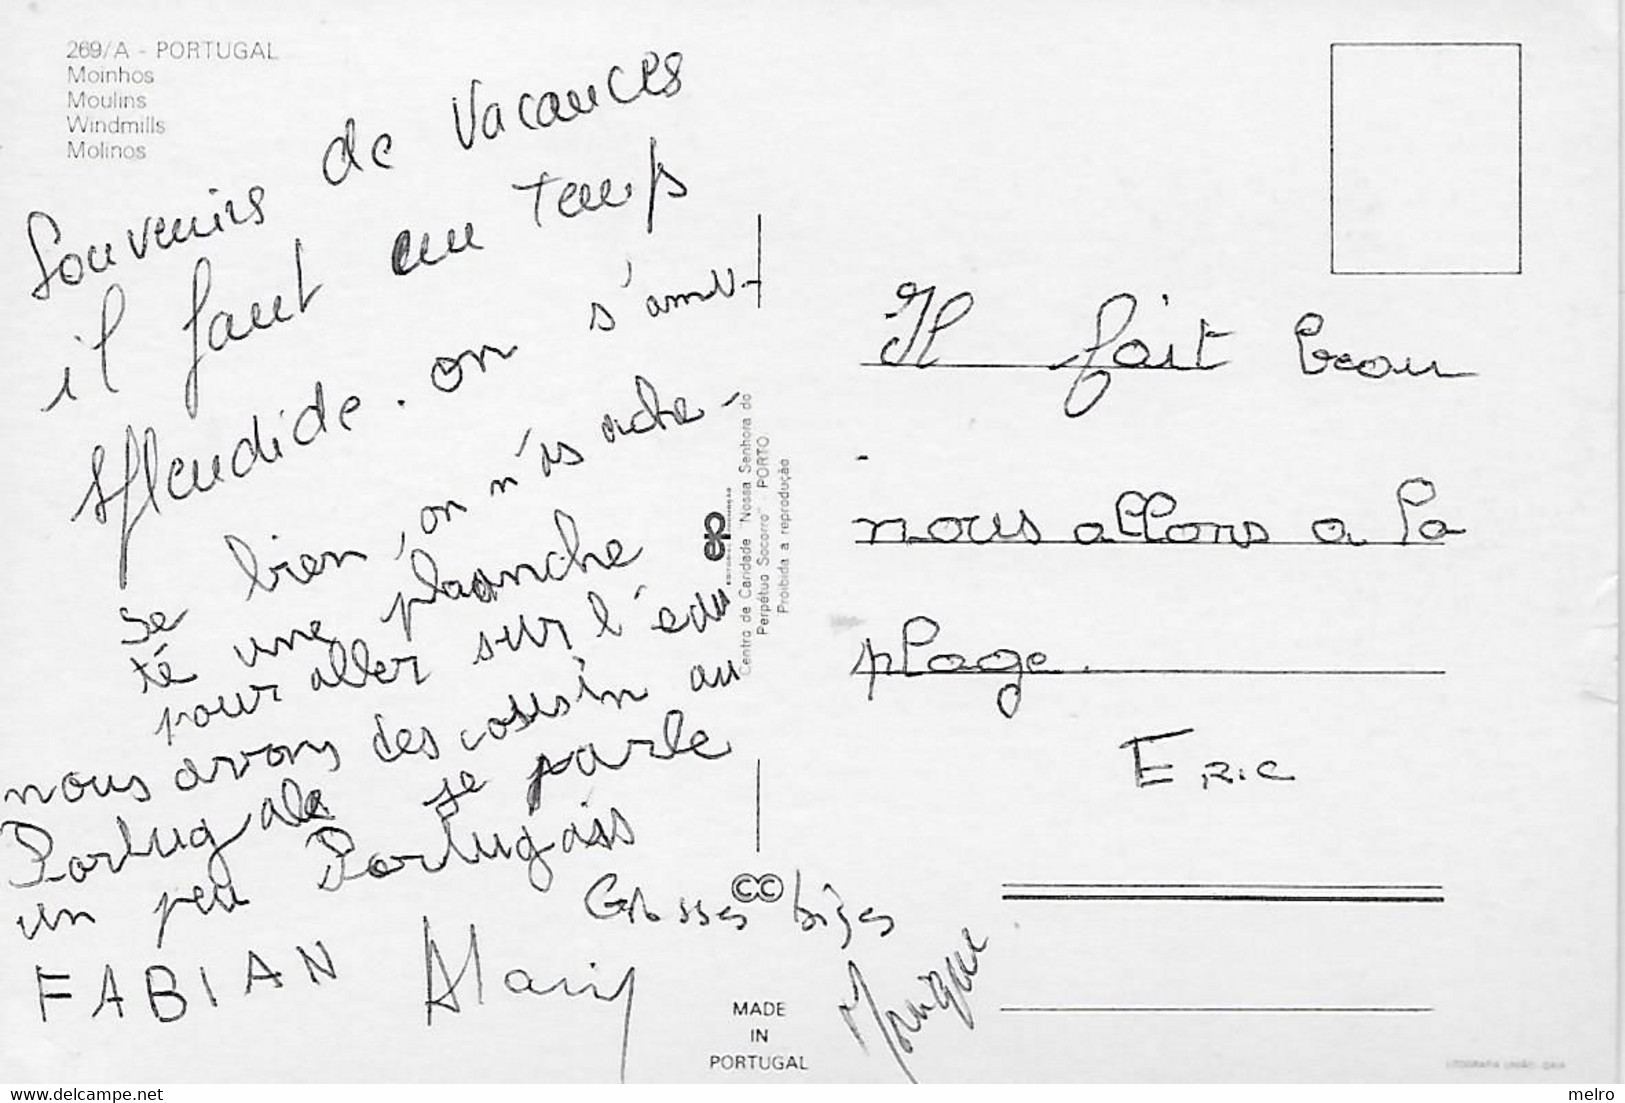 269/A - PORTUGAL
Moinhos
Moulins
Windmills
Molinos
Souvenirs de Vacances
il faut un Temps
splendide. on s'amu-
se bien, on n'as ache-
té une plaanche
pour aller sur l'eau
nous avons des cousin au
Portugale je parle
un peu Portugais
FABIAN Alain
Grosses bises
Monique
Il fait beau
nous allons a la
plage.
ERIC
ep
Centro de Caridade "Nossa Senhora do
Perpétuo Socorro" - PORTO
Proibida a reprodução
CC
MADE
IN
PORTUGAL
LITOGRAFIA UNIÃO - GAIA
delcampe.net
melro